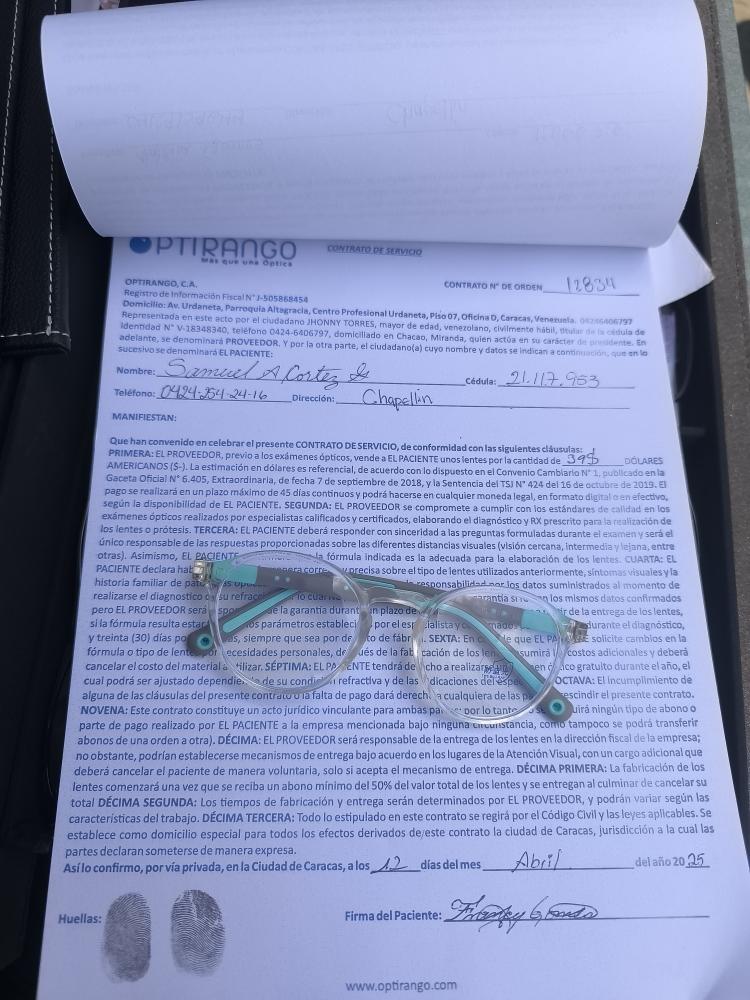 OPTIRANGO
Más que una Óptica
CONTRATO DE SERVICIO
OPTIRANGO, C.A.
CONTRATO N° DE ORDEN 12834
Registro de Información Fiscal N° J-505868454
Domicilio: Av. Urdaneta, Parroquia Altagracia, Centro Profesional Urdaneta, Piso 07, Oficina D, Caracas, Venezuela. 04246406797
Representada en este acto por el ciudadano JHONNY TORRES, mayor de edad, venezolano, civilmente hábil, titular de la cédula de
Identidad N° V-18348340, teléfono 0424-6406797, domiciliado en Chacao, Miranda, quien actúa en su carácter de presidente. En
adelante, se denominará PROVEEDOR. Y por la otra parte, el ciudadano(a) cuyo nombre y datos se indican a continuación, que en lo
sucesivo se denominará EL PACIENTE:
Nombre: Samuel A Cortez Cédula: 21.117.953
Teléfono: 0424-254-24-16 Dirección: Chapellin
MANIFIESTAN:
Que han convenido en celebrar el presente CONTRATO DE SERVICIO, de conformidad con las siguientes cláusulas:
PRIMERA: EL PROVEEDOR, previo a los exámenes ópticos, vende a EL PACIENTE unos lentes por la cantidad de 39$ DÓLARES
AMERICANOS ($-). La estimación en dólares es referencial, de acuerdo con lo dispuesto en el Convenio Cambiario N° 1, publicado en la
Gaceta Oficial N° 6.405, Extraordinaria, de fecha 7 de septiembre de 2018, y la Sentencia del TSJ N° 424 del 16 de octubre de 2019. El
pago se realizará en un plazo máximo de 45 días continuos y podrá hacerse en cualquier moneda legal, en formato digital o en efectivo,
según la disponibilidad de EL PACIENTE. SEGUNDA: EL PROVEEDOR se compromete a cumplir con los estándares de calidad en los
exámenes ópticos realizados por especialistas calificados y certificados, elaborando el diagnóstico y RX prescrito para la realización de
los lentes o prótesis. TERCERA: EL PACIENTE deberá responder con sinceridad a las preguntas formuladas durante el examen y será el
único responsable de las respuestas proporcionadas sobre las diferentes distancias visuales (visión cercana, intermedia y lejana, entre
otras). Asimismo, EL PACIENTE la fórmula indicada es la adecuada para la elaboración de los lentes. CUARTA: EL
PACIENTE declara precisa sobre el tipo de lentes utilizados anteriormente, síntomas visuales y la
historia familiar de responsabilidad por los datos suministrados al momento de
realizarse el diagnostico o su los mismos datos confirmados
pero EL PROVEEDOR será la garantía durante un plazo de de la entrega de los lentes,
si la fórmula resulta parámetros establecidos por el especialista y durante el diagnóstico,
y treinta (30) días siempre que sea por de fábrica. SEXTA: En que EL solicite cambios en la
fórmula o tipo de lentes necesidades personales, después de la fabricación de los lentes asumirá costos adicionales y deberá
cancelar el costo del material a utilizar. SÉPTIMA: EL PACIENTE tendrá a realizarse gratuito durante el año, el
cual podrá ser ajustado dependiendo de su condición refractiva y de las indicaciones del OCTAVA: El incumplimiento de
alguna de las cláusulas del presente contrato o la falta de pago dará derecho cualquiera de las rescindir el presente contrato.
NOVENA: Este contrato constituye un acto jurídico vinculante para ambas por lo tanto ningún tipo de abono o
parte de pago realizado por EL PACIENTE a la empresa mencionada bajo ninguna circunstancia, como tampoco se podrá transferir
abonos de una orden a otra). DÉCIMA: EL PROVEEDOR será responsable de la entrega de los lentes en la dirección fiscal de la empresa;
no obstante, podrían establecerse mecanismos de entrega bajo acuerdo en los lugares de la Atención Visual, con un cargo adicional que
deberá cancelar el paciente de manera voluntaria, solo si acepta el mecanismo de entrega. DÉCIMA PRIMERA: La fabricación de los
lentes comenzará una vez que se reciba un abono mínimo del 50% del valor total de los lentes y se entregan al culminar de cancelar su
total DÉCIMA SEGUNDA: Los tiempos de fabricación y entrega serán determinados por EL PROVEEDOR, y podrán variar según las
características del trabajo. DÉCIMA TERCERA: Todo lo estipulado en este contrato se regirá por el Código Civil y las leyes aplicables. Se
establece como domicilio especial para todos los efectos derivados de este contrato la ciudad de Caracas, jurisdicción a la cual las
partes declaran someterse de manera expresa.
Así lo confirmo, por vía privada, en la Ciudad de Caracas, a los 12 días del mes Abril del año 2025
Huellas:
Firma del Paciente:
www.optirango.com